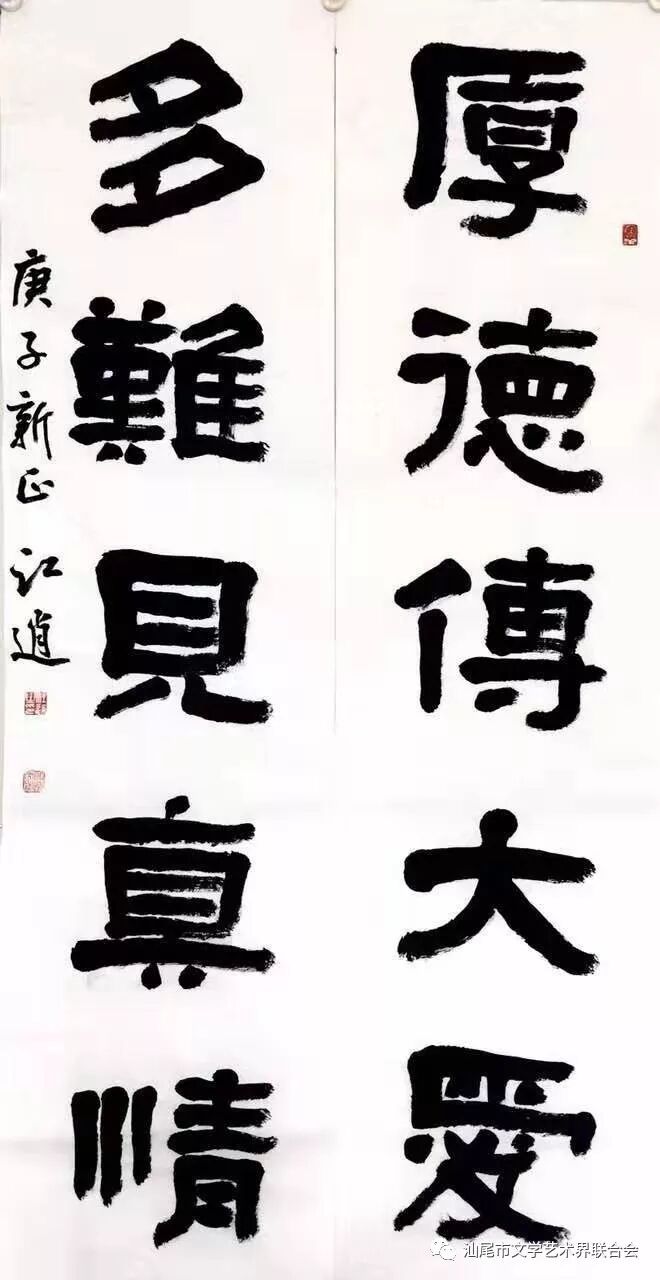 厚德傳大愛
多難見真情
庚子新正 江逍
汕尾市文学艺术界联合会